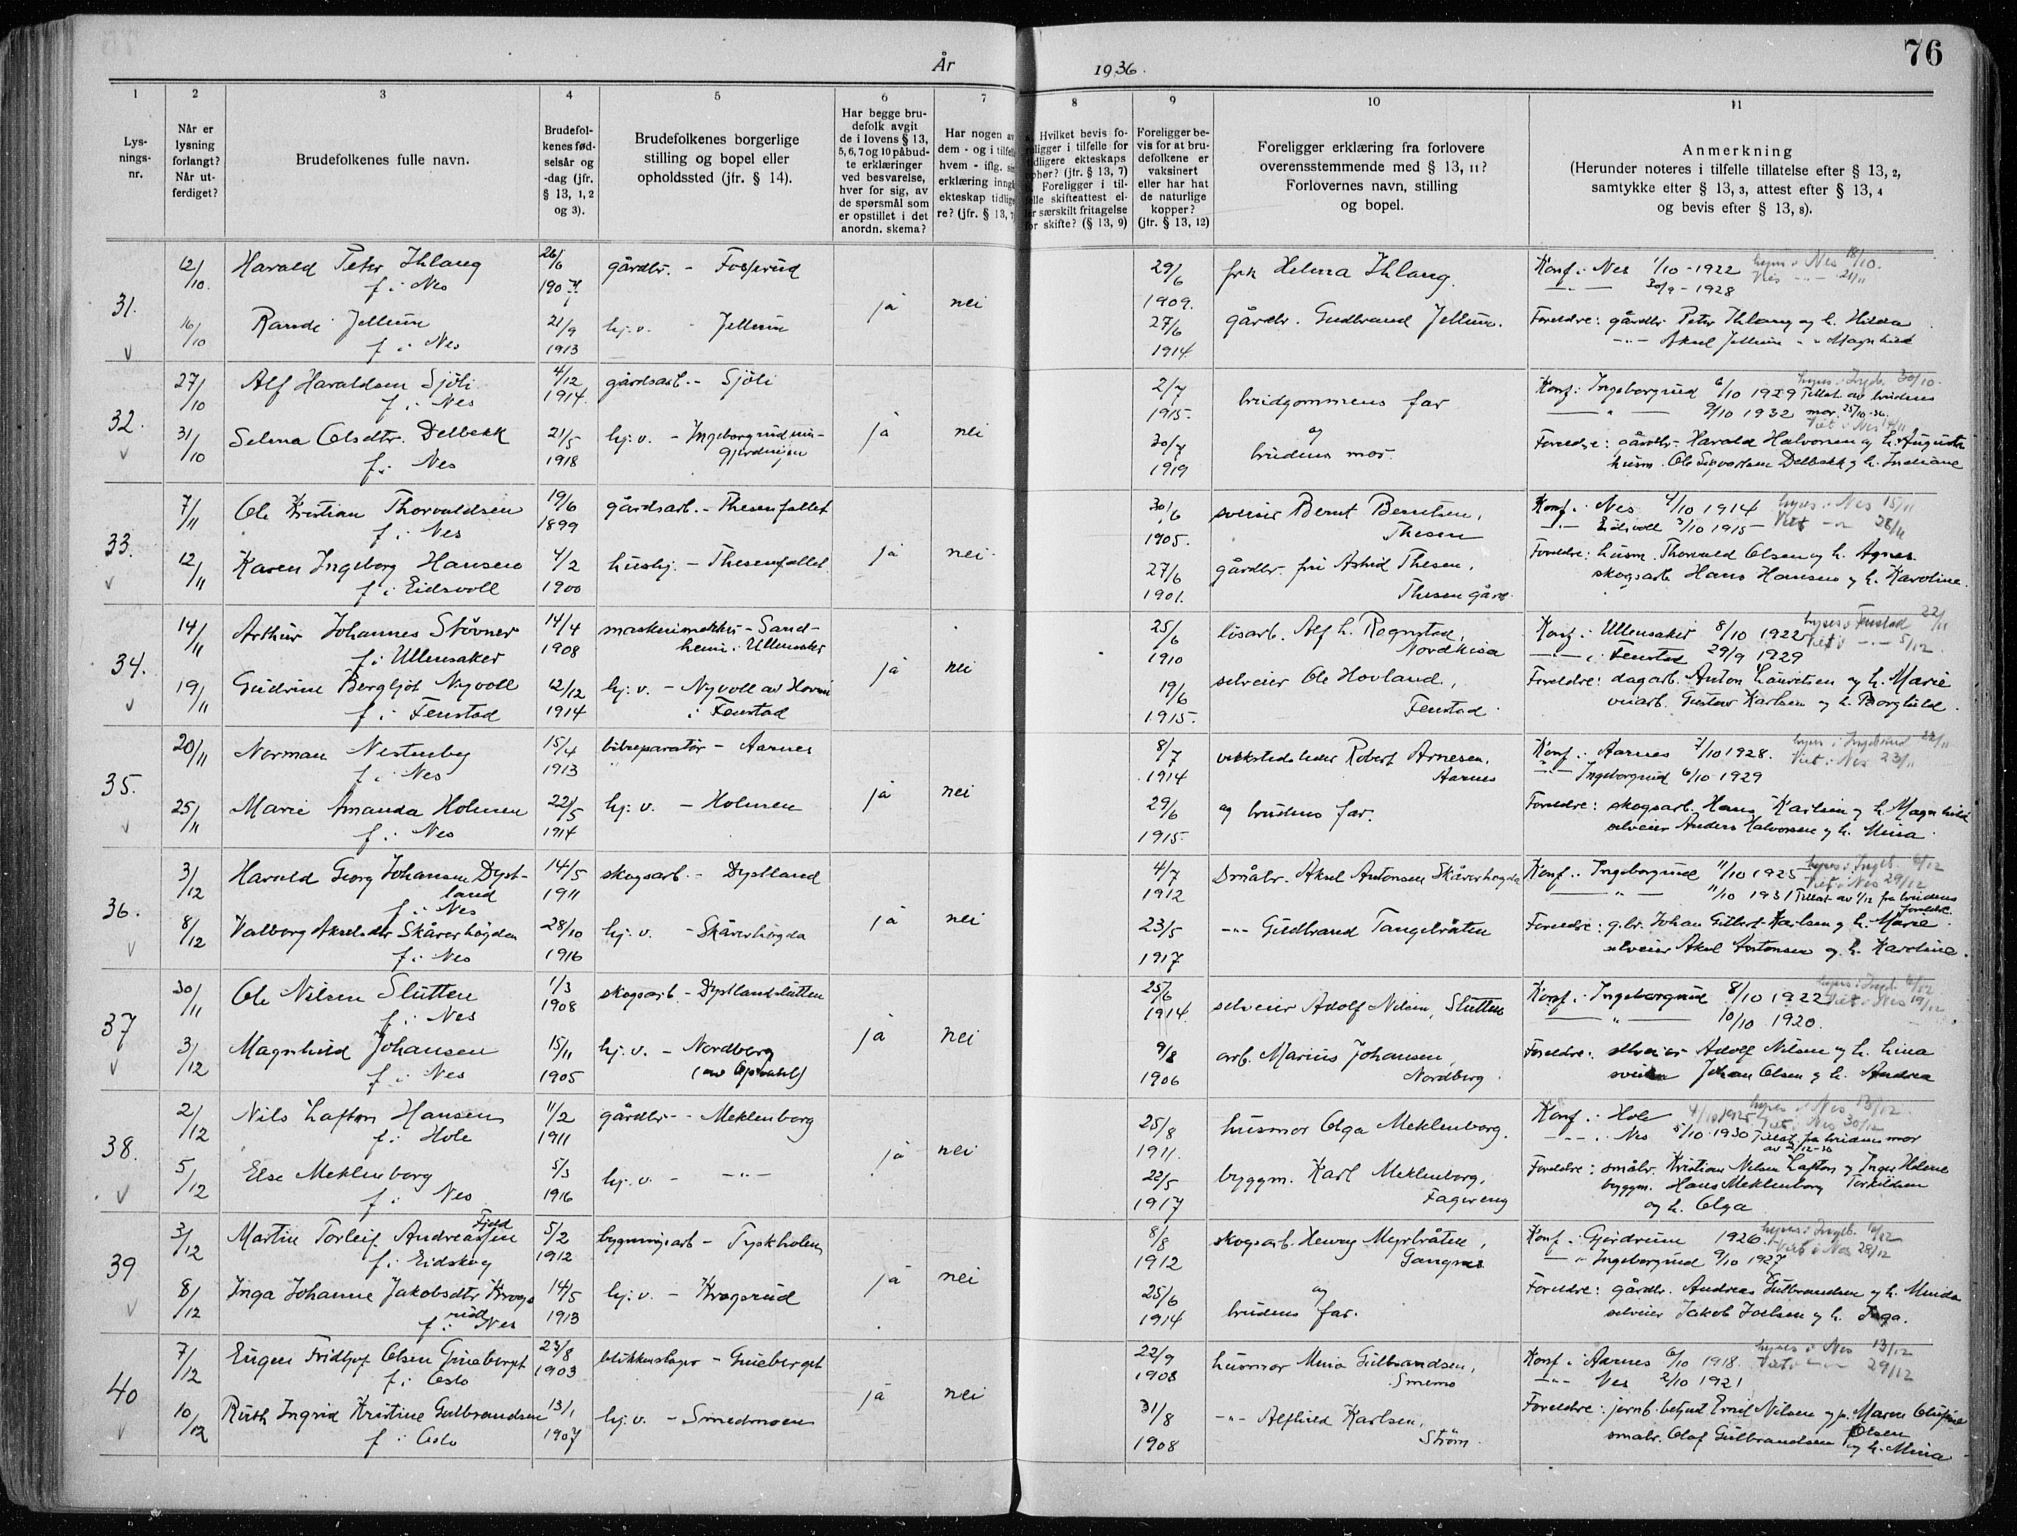 76
År 1936.
1 2 3 4 5 6 7 8 9 10 11
Lys-
nings-
nr.
Når er
lysning
forlangt?
Når ut-
ferdiget?
Brudefolkenes fulle navn.
Brudefol-
kenes fød-
selsår og
-dag (jfr.
§ 13, 1, 2
og 3).
Brudefolkenes borgerlige
stilling og bopel eller
opholdssted (jfr. § 14).
Har begge bru-
defolk avgit
de i lovens § 13,
5, 6, 7 og 10 påbud-
te erklæringer
ved besvarelse,
hver for sig, av
de spørsmål som
er opstillet i det
anordn. skema?
Har nogen av
dem - og i tilfelle
hvem - iflg.
erklæring inngå
ekteskap tidlige
re? (jfr. § 13, 7
Hvilket bevis fo-
religger i tilfelle for
tidligere ekteskaps
ophør? (jfr. § 13, 7)
Foreligger i til-
felle skifteattest el-
ler særskilt fritagelse
for skifte? (§ 13, 9)
Foreligger be-
vis for at bru-
defolkene er
vaksinert
eller har hat
de naturlige
kopper?
(jfr. § 13, 12)
Foreligger erklæring fra forlovere
overensstemmende med § 13, 11?
Forlovernes navn, stilling
og bopel.
Anmerkning
(Herunder noteres i tilfelle tillatelse efter § 13, 2,
samtykke efter § 13, 3, attest efter § 13, 4
og bevis efter § 13, 8).
31.
12/10 Harald Peter Ihlang 26/6 gårdbr. - Fosserud 29/6 frk Helma Ihlang. Konf. i Nes 1/10 - 1922 lyses i Nes 18/10.
f. i Nes 1907 1909. 30/9 - 1928 Viet 21/11
ja nei
16/10 Randi Jellum 21/9 hj. v. Jellum 27/6 gårdbr. Gudbrand Jellum. Foreldre: gårdbr. Peter Ihlang og h. Hilda
f. i Nes 1913 1914. Aksel Jellum Magnhild
32.
27/10 Alf Haraldsen Sjöli 4/12 gårdsarb. - Sjöli 2/7 brudgommens far Konf. i Ingeborgrud 6/10 1929 Tillat. av brudens 30/10.
f. i Nes 1914. 1915. 9/10 1932 mor. 25/10-36.
ja nei og Viet i Nes 14/11
31/10 Selma Olsdtr. Delbekk 21/5 hj. v. - Ingeborgrud 30/7 brudens mor. Foreldre: gårdbr. Harald Halvorsen og h. Augusta
f. i Nes 1918 1919 husm. Ole Delbekk og h. Indiane
33.
7/11 Ole Kristian Thorvaldsen 19/6 gårdsarb. - Thesenfallet 30/6 sveiser Bernt Berntsen, Konf. i Nes 4/10 1914 lyses i Nes 15/11
f. i Nes 1899 1905. Thesen Eidsvoll 3/10 1915 Viet 28/11
ja nei
12/11 Karen Ingeborg Hansen 4/2 hushj. - Thesenfallet 27/6 gårdbr. fru Astrid Thesen, Foreldre: husm. Thorvald Olsen og h. Agnes
f. i Eidsvoll 1900 1901. Thesen gård. skogsarb Hans Hansen og h. Karoline.
34.
14/11 Arthur Johannes Stövner 14/4 maskinmekkr. - Sand- 25/6 løsarb. Alf h. Rognstad, Konf. i Ullensaker 8/10 1922 lyses i Fenstad 22/11
f. i Ullensaker 1908 heim i Ullensaker 1910 Nordkisa i Fenstad 29/9 1929 Viet 5/12.
ja nei
19/11 Gudrun Bergljot Nyvoll 12/12 hj. v. - Nyvoll av Horni 19/6 selveier Ole Hovland, Foreldre: dagarb. Anton Lauritsen og h. Marie
f. i Fenstad 1914 i Fenstad 1915. Fenstad. veiarb. Gustav Karlsen og h. Borghild.
35.
20/11 Norman Nestenby 15/4 bilreparatör - Aarnes 8/7 verkstedsleder Robert Arnesen, Konf. i Aarnes 7/10 1928. 22/11
f. i Nes 1913 1914 Aarnes Ingeborgrud 6/10 1929 Viet i Nes 23/11
ja nei
25/11 Marie Amanda Holmen 22/5 hj. v. - Holmen 29/6 og brudens far. Foreldre: skogsarb. Hans Karlsen og h. Magnhild
f. i Nes 1914 1915. selveier Anders Halvorsen og h. Mina.
36.
3/12 Harald Georg Johansen Dyst- 14/5 skogsarb. - Dystland 4/7 Småbr. Aksel Antonsen Skårerhögda Konf. i Ingeborgrud 11/10 1925 lyses i Ingeb. 6/12
land
f. i Nes 1911 1912 11/10 1931 Tillat. av 1/12 fra brudens Viet i Nes 29/12
ja nei foreldre.
8/12 Valborg Akselsdtr Skårerhögden 28/10 hj. v. - Skårerhögda 23/5 Gudbrand Tangebråten Foreldre: g.br. Johan Gilbert Karlsen og h. Marie.
f. i Nes 1916 1917 selveier Aksel Antonsen og h. Karoline.
37
30/11 Ole Nilsen Slutten 1/3 skogsarb. - Dystlandslutten 25/6 selveier Adolf Nilsen, Slutten Konf. i Ingeborgrud 8/10 1922 lyses i Ingeb. 6/12
f. i Nes 1908 1914. 10/10 1920. Viet i Nes 19/12
ja nei
3/12 Magnhild Johansen 15/11 hj. v. - Nordberg 9/8 arb. Marius Johansen, Foreldre: selveier Adolf Nilsen og h. Lina
f. i Nes 1905 1906 Nordberg. Johan Olsen og h. Andrea
38.
2/12 Nils Lafton Hansen 11/2 gårdbr. - Meklenborg 25/8 husmor Olga Meklenborg. Konf. i Hole 4/10 1925 lyses i Nes 13/12
f. i Hole 1911 1911. Nes 5/10 1930 Tillat fra brudens mor Viet i Nes 30/12
ja nei
5/12 Else Meklenborg 5/3 hj. v. - 22/5 byggm. Karl Meklenborg, Foreldre: småbr. Kristian Nilsen Lafton og Inger Helene
f. i Nes 1916 1917 Fagereng byggm. Hans Meklenborg Torkildsen
og h. Olga
39
3/12 Martin Torleif Andreassen Fjeld 5/2 bygningsarb - Tyskholen 8/8 skogsarb. Henry Myrbråten, Konf. i Gjerdrum 1926. lyses i Ingeb. 6/12
f. i Eidskog 1912 1912 Gangnes Ingeborgrud 9/10 1927 Viet i Nes 28/12
ja nei og
8/12 Inga Johanne Jakobsdtr Krogs- 14/5 hj. v. - Krogsrud 25/6 brudens far. Foreldre: gårdbr. Andreas Gulbrandsen og h. Minda
rud
f. i Nes 1913 1914 selveier Jakob Joelsen og h. Inga.
40
7/12 Eugen Fridtjof Olsen Grueberget 23/8 blikkenslager - Grueberget 22/9 husmor Mina Gulbrandsen, Konf. i Aarnes 6/10 1918. lyses i Nes 13/12
f. i Oslo 1903 1908 Nes 2/10 1921 Viet 29/12
ja nei
10/12 Ruth Ingrid Kristine Gulbrandsen 13/1 hj. v. - Smedmoen 31/8 Alfhild Karlsen, Foreldre: jernb. betjent Emil Nilsen og p. Maren Olufine
Olsen
f. i Oslo 1907 1908 Ström. småbr. Olaf Gulbrandsen og h. Mina